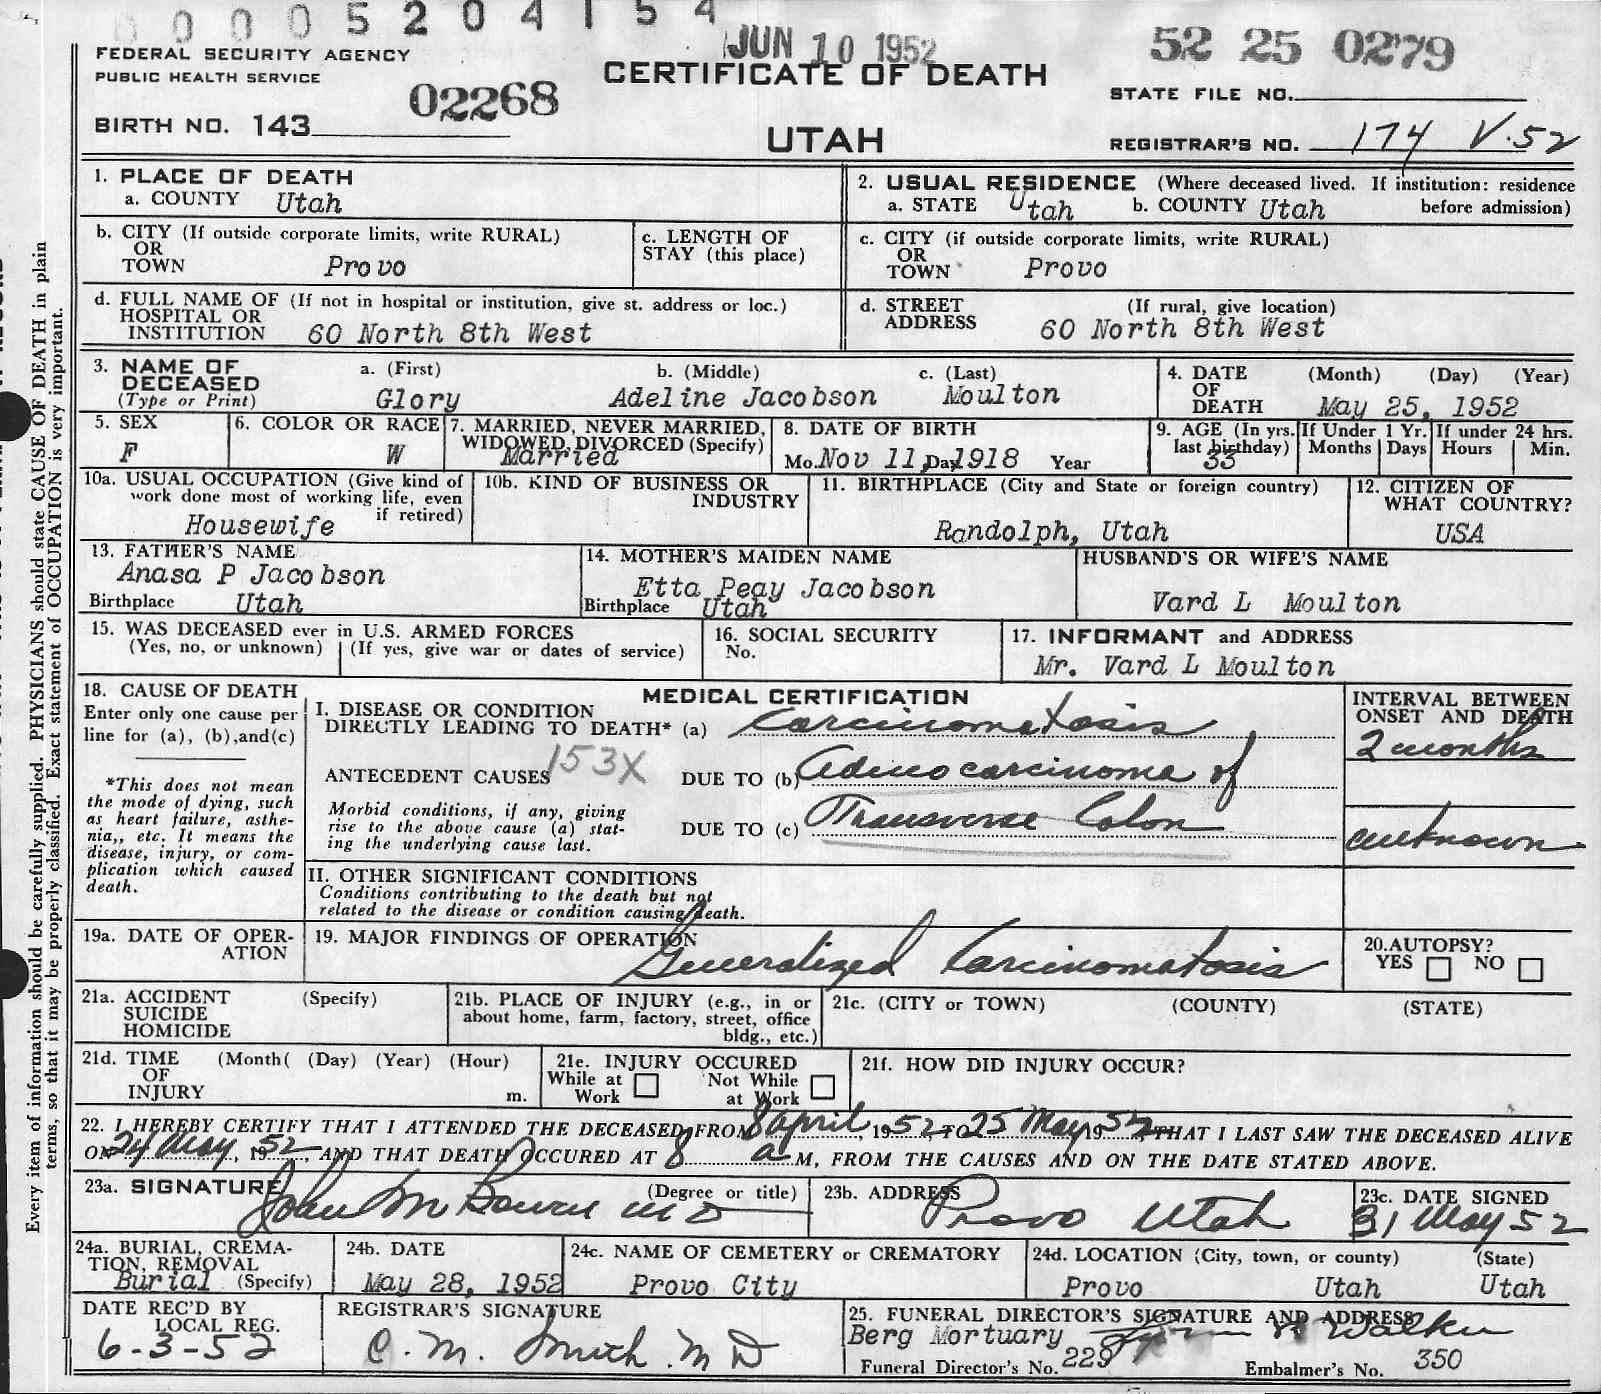 0 0 0 5 2 0 4 1 5 4
JUN 10 1952
52 25 0279
FEDERAL SECURITY AGENCY
PUBLIC HEALTH SERVICE
02268
CERTIFICATE OF DEATH
STATE FILE NO.
BIRTH NO. 143
UTAH
REGISTRAR'S NO. 174 V.52
1. PLACE OF DEATH
a. COUNTY Utah
2. USUAL RESIDENCE (Where deceased lived. If institution: residence before admission)
a. STATE Utah b. COUNTY Utah
b. CITY (If outside corporate limits, write RURAL)
OR
TOWN Provo
c. LENGTH OF
STAY (this place)
c. CITY (if outside corporate limits, write RURAL)
OR
TOWN Provo
d. FULL NAME OF (If not in hospital or institution, give st. address or loc.)
HOSPITAL OR
INSTITUTION 60 North 8th West
d. STREET (If rural, give location)
ADDRESS 60 North 8th West
3. NAME OF
DECEASED
(Type or Print)
a. (First) b. (Middle) c. (Last)
Glory Adeline Jacobson Moulton
4. DATE (Month) (Day) (Year)
OF
DEATH May 25, 1952
5. SEX
F
6. COLOR OR RACE
W
7. MARRIED, NEVER MARRIED,
WIDOWED, DIVORCED (Specify)
Married
8. DATE OF BIRTH
Mo. Nov 11, Day 1918 Year
9. AGE (In yrs.
last birthday)
33
If Under 1 Yr.
Months Days
If under 24 hrs.
Hours Min.
10a. USUAL OCCUPATION (Give kind of
work done most of working life, even
if retired)
Housewife
10b. KIND OF BUSINESS OR
INDUSTRY
11. BIRTHPLACE (City and State or foreign country)
Randolph, Utah
12. CITIZEN OF
WHAT COUNTRY?
USA
13. FATHER'S NAME
Anasa P Jacobson
Birthplace Utah
14. MOTHER'S MAIDEN NAME
Etta Peay Jacobson
Birthplace Utah
HUSBAND'S OR WIFE'S NAME
Vard L Moulton
15. WAS DECEASED ever in U.S. ARMED FORCES
(Yes, no, or unknown) (If yes, give war or dates of service)
16. SOCIAL SECURITY
No.
17. INFORMANT and ADDRESS
Mr. Vard L Moulton
18. CAUSE OF DEATH
Enter only one cause per
line for (a), (b),and(c)
*This does not mean
the mode of dying, such
as heart failure, asthe-
nia,, etc. It means the
disease, injury, or com-
plication which caused
death.
MEDICAL CERTIFICATION
I. DISEASE OR CONDITION
DIRECTLY LEADING TO DEATH* (a) Carcinomatosis
ANTECEDENT CAUSES 153X DUE TO (b) Adenocarcinoma of
Morbid conditions, if any, giving
rise to the above cause (a) stat-
ing the underlying cause last.
DUE TO (c) Transverse Colon
INTERVAL BETWEEN
ONSET AND DEATH
2 months
unknown
II. OTHER SIGNIFICANT CONDITIONS
Conditions contributing to the death but not
related to the disease or condition causing death.
19a. DATE OF OPER-
ATION
19. MAJOR FINDINGS OF OPERATION
Generalized Carcinomatosis
20. AUTOPSY?
YES NO
21a. ACCIDENT (Specify)
SUICIDE
HOMICIDE
21b. PLACE OF INJURY (e.g., in or
about home, farm, factory, street, office
bldg., etc.)
21c. (CITY or TOWN) (COUNTY) (STATE)
21d. TIME (Month( (Day) (Year) (Hour)
OF
INJURY m.
21e. INJURY OCCURED
While at Work Not While at Work
21f. HOW DID INJURY OCCUR?
22. I HEREBY CERTIFY THAT I ATTENDED THE DECEASED FROM 8 April, 1952, TO 25 May 1952, THAT I LAST SAW THE DECEASED ALIVE
ON 24 May, 1952, AND THAT DEATH OCCURED AT 8 a M, FROM THE CAUSES AND ON THE DATE STATED ABOVE.
23a. SIGNATURE (Degree or title)
John M Bowen MD
23b. ADDRESS
Provo Utah
23c. DATE SIGNED
31 May 52
24a. BURIAL, CREMA-
TION, REMOVAL
Burial (Specify)
24b. DATE
May 28, 1952
24c. NAME OF CEMETERY or CREMATORY
Provo City
24d. LOCATION (City, town, or county) (State)
Provo Utah Utah
DATE REC'D BY
LOCAL REG.
6-3-52
REGISTRAR'S SIGNATURE
C. M. Smith MD
25. FUNERAL DIRECTOR'S SIGNATURE AND ADDRESS
Berg Mortuary Walker
Funeral Director's No. 229 Embalmer's No. 350
Every item of information should be carefully supplied. PHYSICIANS should state CAUSE OF DEATH in plain
terms, so that it may be properly classified. Exact statement of OCCUPATION is very important.